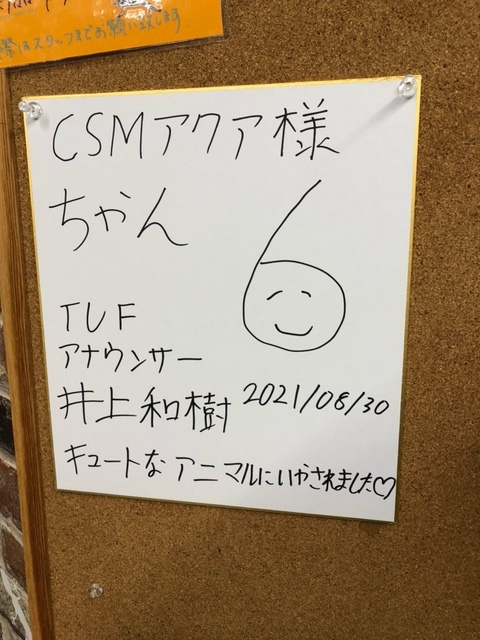 際はスタッフまでお願い致します
CSMアクア様
ちゃん 6
TUF
アナウンサー
井上和樹 2021/08/30
キュートなアニマルにいやされました♡